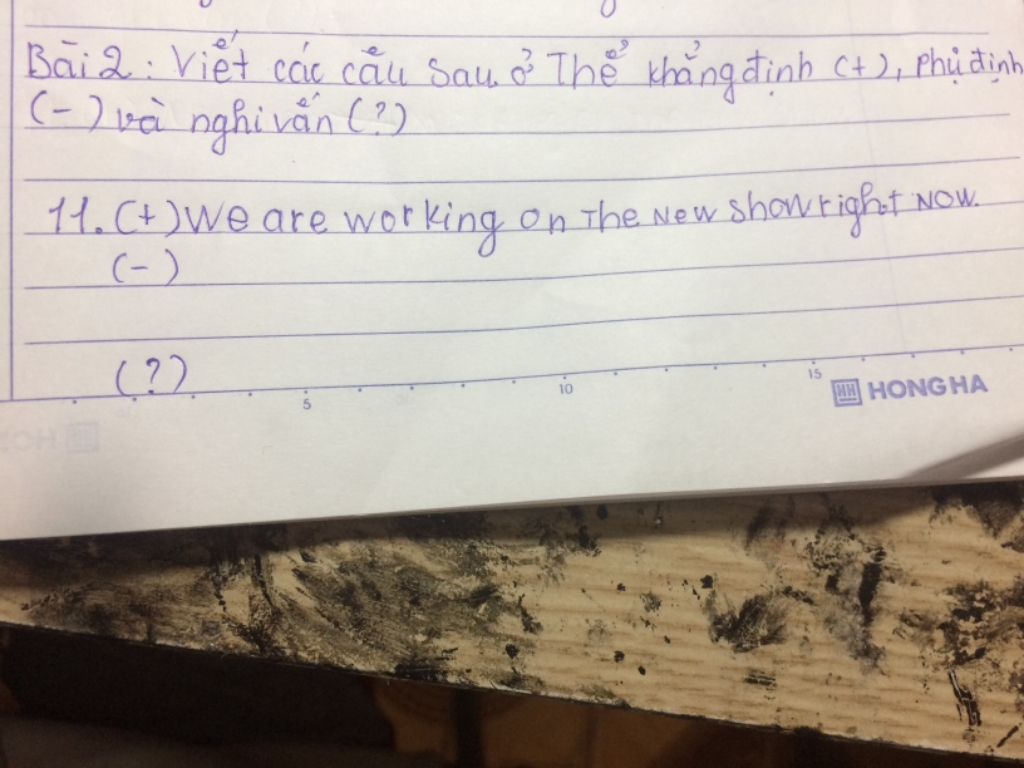 Bài 2: Viết các câu sau ở Thể khẳng định (+), phủ định
(-) và nghi vấn (?)
11. (+) We are working on The New show right now.
(-)
(?)
5 10 15
HH HONG HA